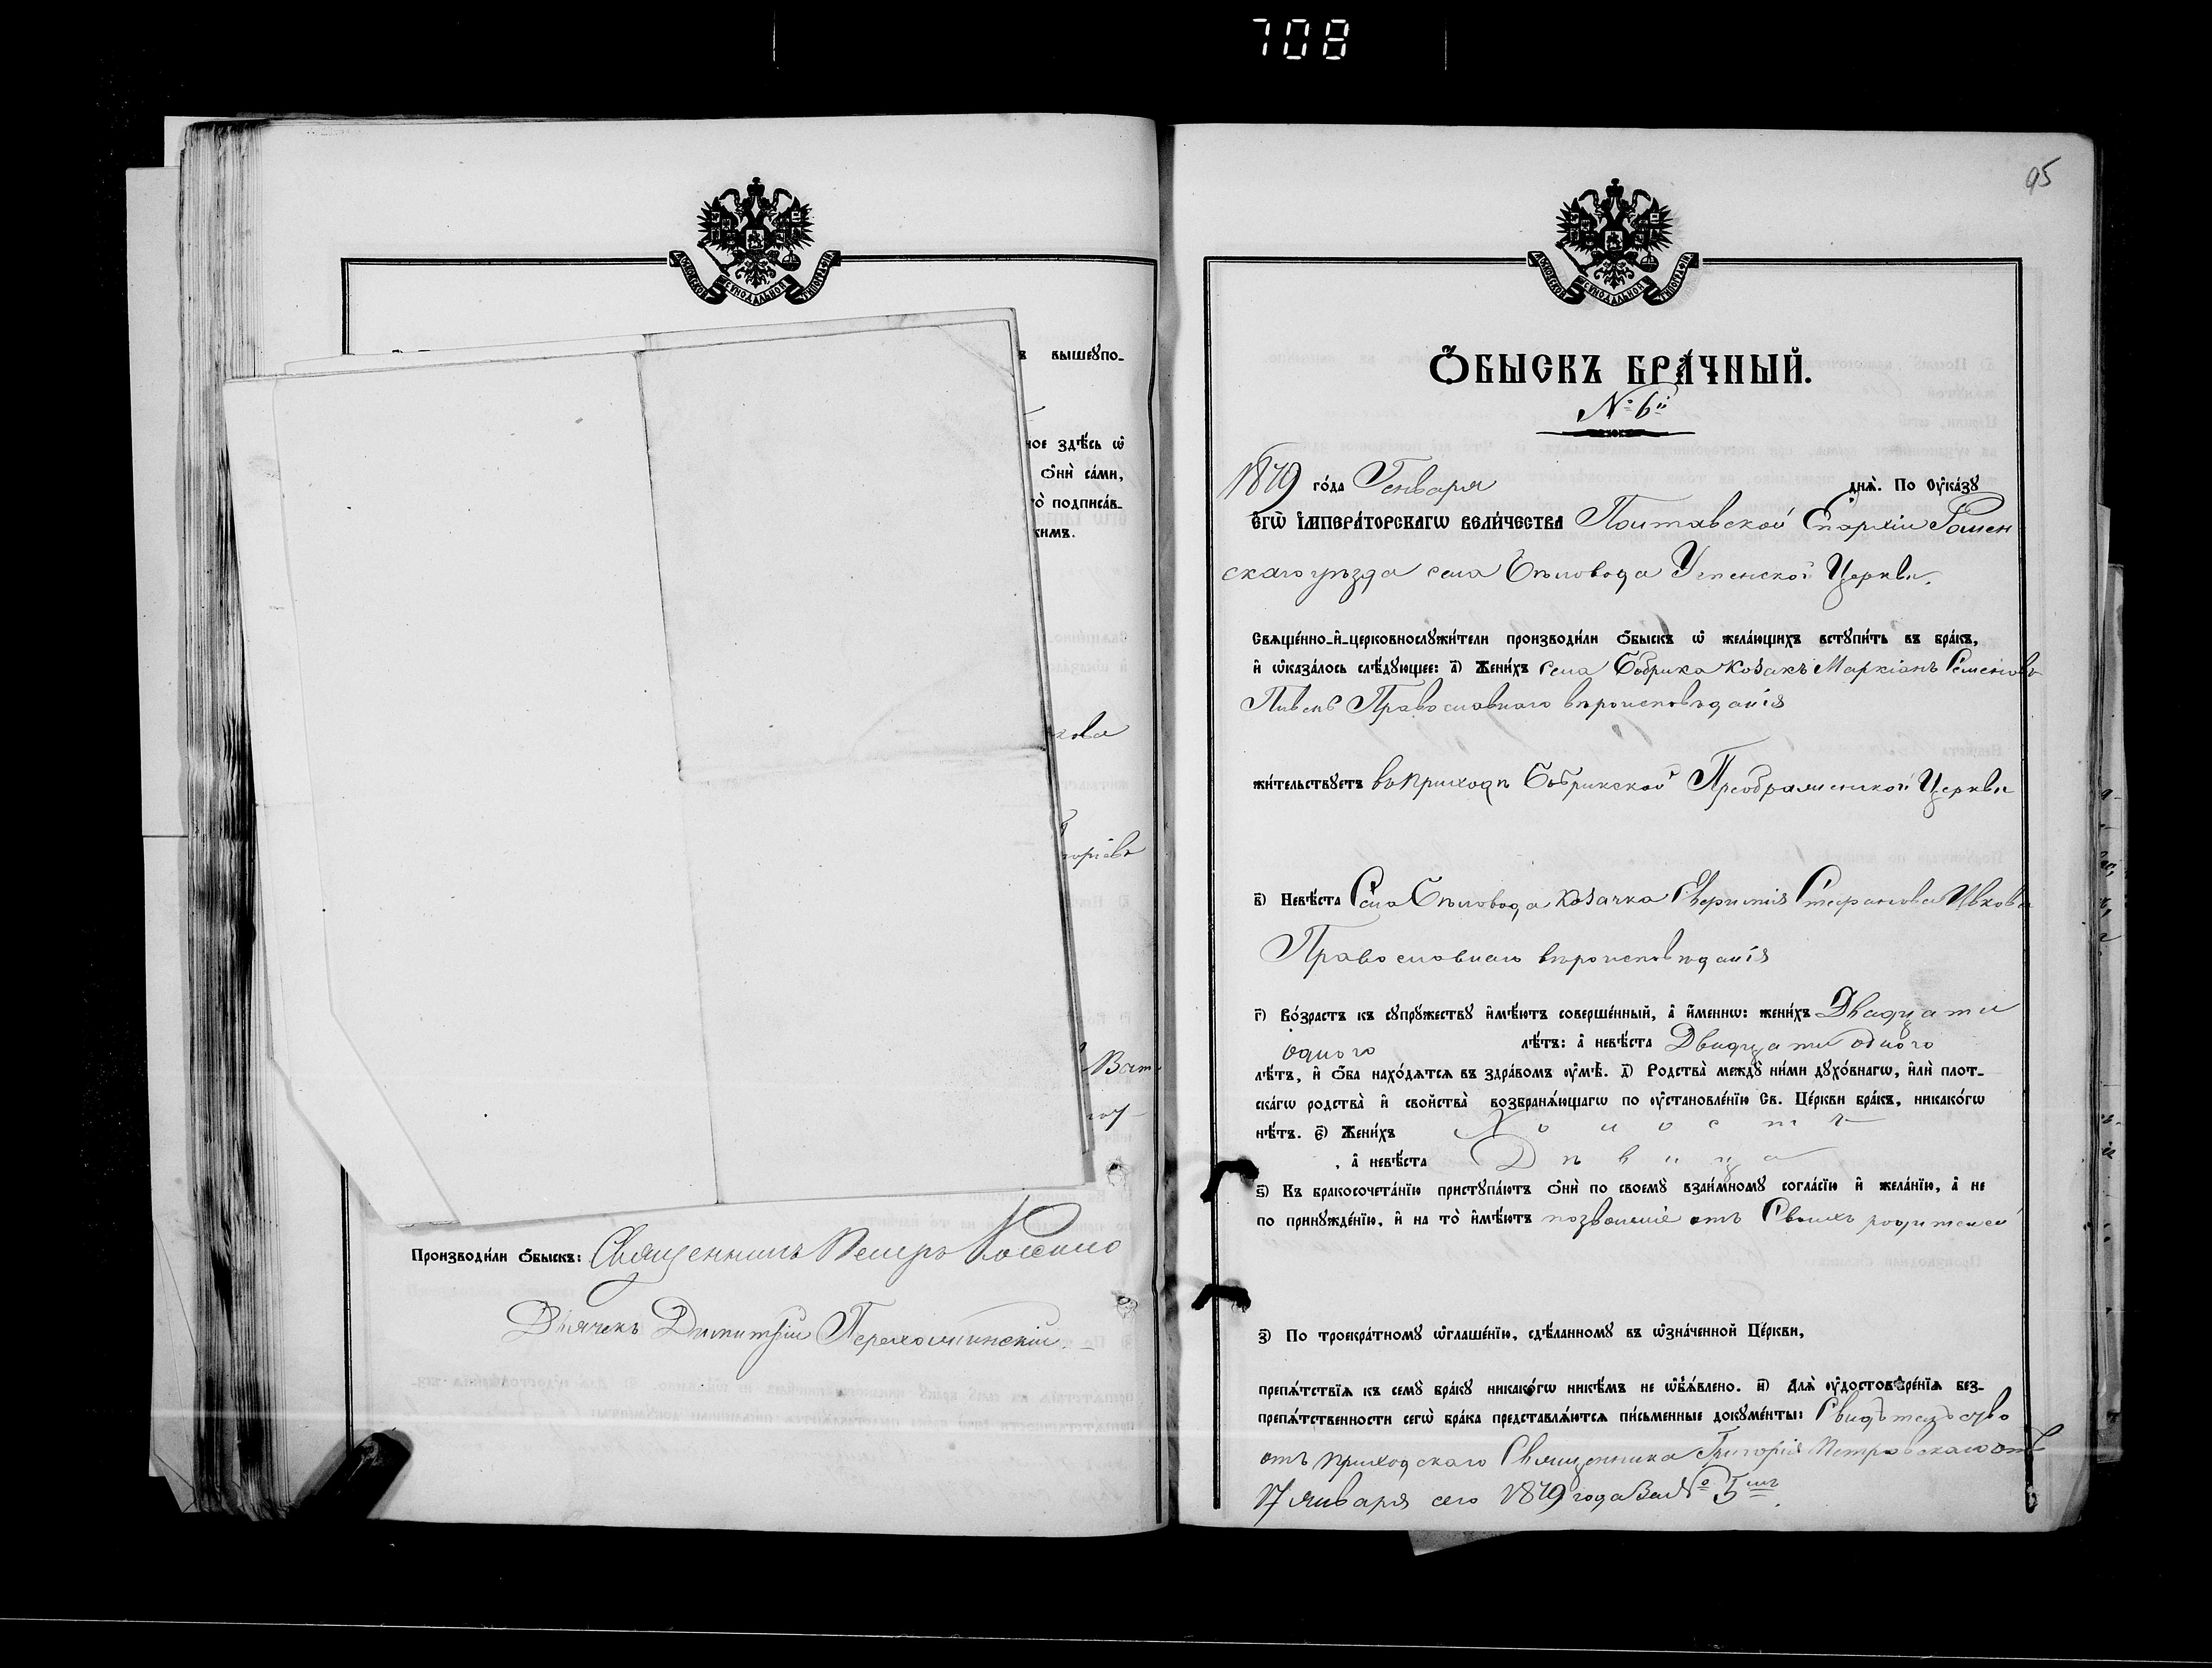 708
МОСКОВСКОЙ СѴНОДАЛЬНОЙ ТИПОГРАФІИ
вышеꙋпо-
ное здѣ́сь ѡ҆
ѻ҆нѝ са́ми,
то̀ подписа́в-
ским.
кова
горіевъ
Производи́ли ѻ҆́быскъ: Священникъ Петръ
Дьячекъ Димитрій
95
МОСКОВСКОЙ СѴНОДАЛЬНОЙ ТИПОГРАФІИ
Ѻ҆́БЫСКЪ БРА́ЧНЫЙ.
№ 6й
1879 го́да Генваря днѧ̀. По Оу҆ка́зꙋ
Є҆гѡ̀ І҆мпера́торскагѡ Вели́чества Полтавской Епархіи Ромен
скаго уѣзда села Бѣловода Успенской Церкви.
Свѧще́нно-и҆-церковнослꙋжи́тели производи́ли ѻ҆́быскъ ѡ҆ жела́ющихъ встꙋпи́ть въ бра́къ,
и҆ ѡ҆каза́лось слѣ́дꙋющее: а҃) Жени́хъ села Бобрика козакъ Маркіанъ Семеновъ
Пивень Православнаго вѣроисповѣданія
жи́тельствꙋетъ въ приходѣ Бобрикской Преображенской Церкви
в҃) Невѣ́ста Села Бѣловода козачка Стефанова Ивкова
Православнаго вѣроисповѣданія
г҃) Во́зрастъ къ сꙋпрꙋ́жествꙋ и҆мѣ́ютъ соверше́нный, а҆ и҆́меннѡ: жени́хъ Двадцати
одного лѣ́тъ: а҆ невѣ́ста Двадцати одного
лѣ́тъ, и҆ ѻ҆́ба нахо́дѧтсѧ въ здра́вомъ оу҆мѣ̀. д҃) Родства̀ междꙋ̀ ни́ми дꙋхо́внагѡ, и҆лѝ плот-
ска́гѡ родства̀ и҆ сво́йства̀ возбранѧ́ющагѡ по оу҆становле́нїю Св. Це́ркви бра́къ, никако́гѡ
нѣ́тъ. є҃) Жени́хъ Холостъ
, а҆ невѣ́ста Дѣвица
ѕ҃) Къ бракосочета́нїю пристꙋпа́ютъ ѻ҆нѝ по своемꙋ̀ взаи́мномꙋ согла́сїю и҆ жела́нїю, а҆ не
по принꙋжде́нїю, и҆ на то̀ и҆мѣ́ютъ позволеніе отъ Своихъ родителей
з҃) По троекра́тномꙋ ѡ҆глаше́нїю, сдѣ́ланномꙋ въ ѡ҆зна́ченной Це́ркви,
препѧ́тствїѧ къ семꙋ̀ бра́кꙋ никако́гѡ никѣ́мъ не ѡ҆б̾ѧ́влено. и҃) Длѧ̀ оу҆достовѣре́нїѧ без-
препѧ́тственности сегѡ̀ бра́ка представлѧ́ютсѧ пи́сьменные докꙋме́нты: Свидѣтельство
отъ приходскаго Священника Григорія Петровскаго отъ
17 января сего 1879 года за № 5мъ.